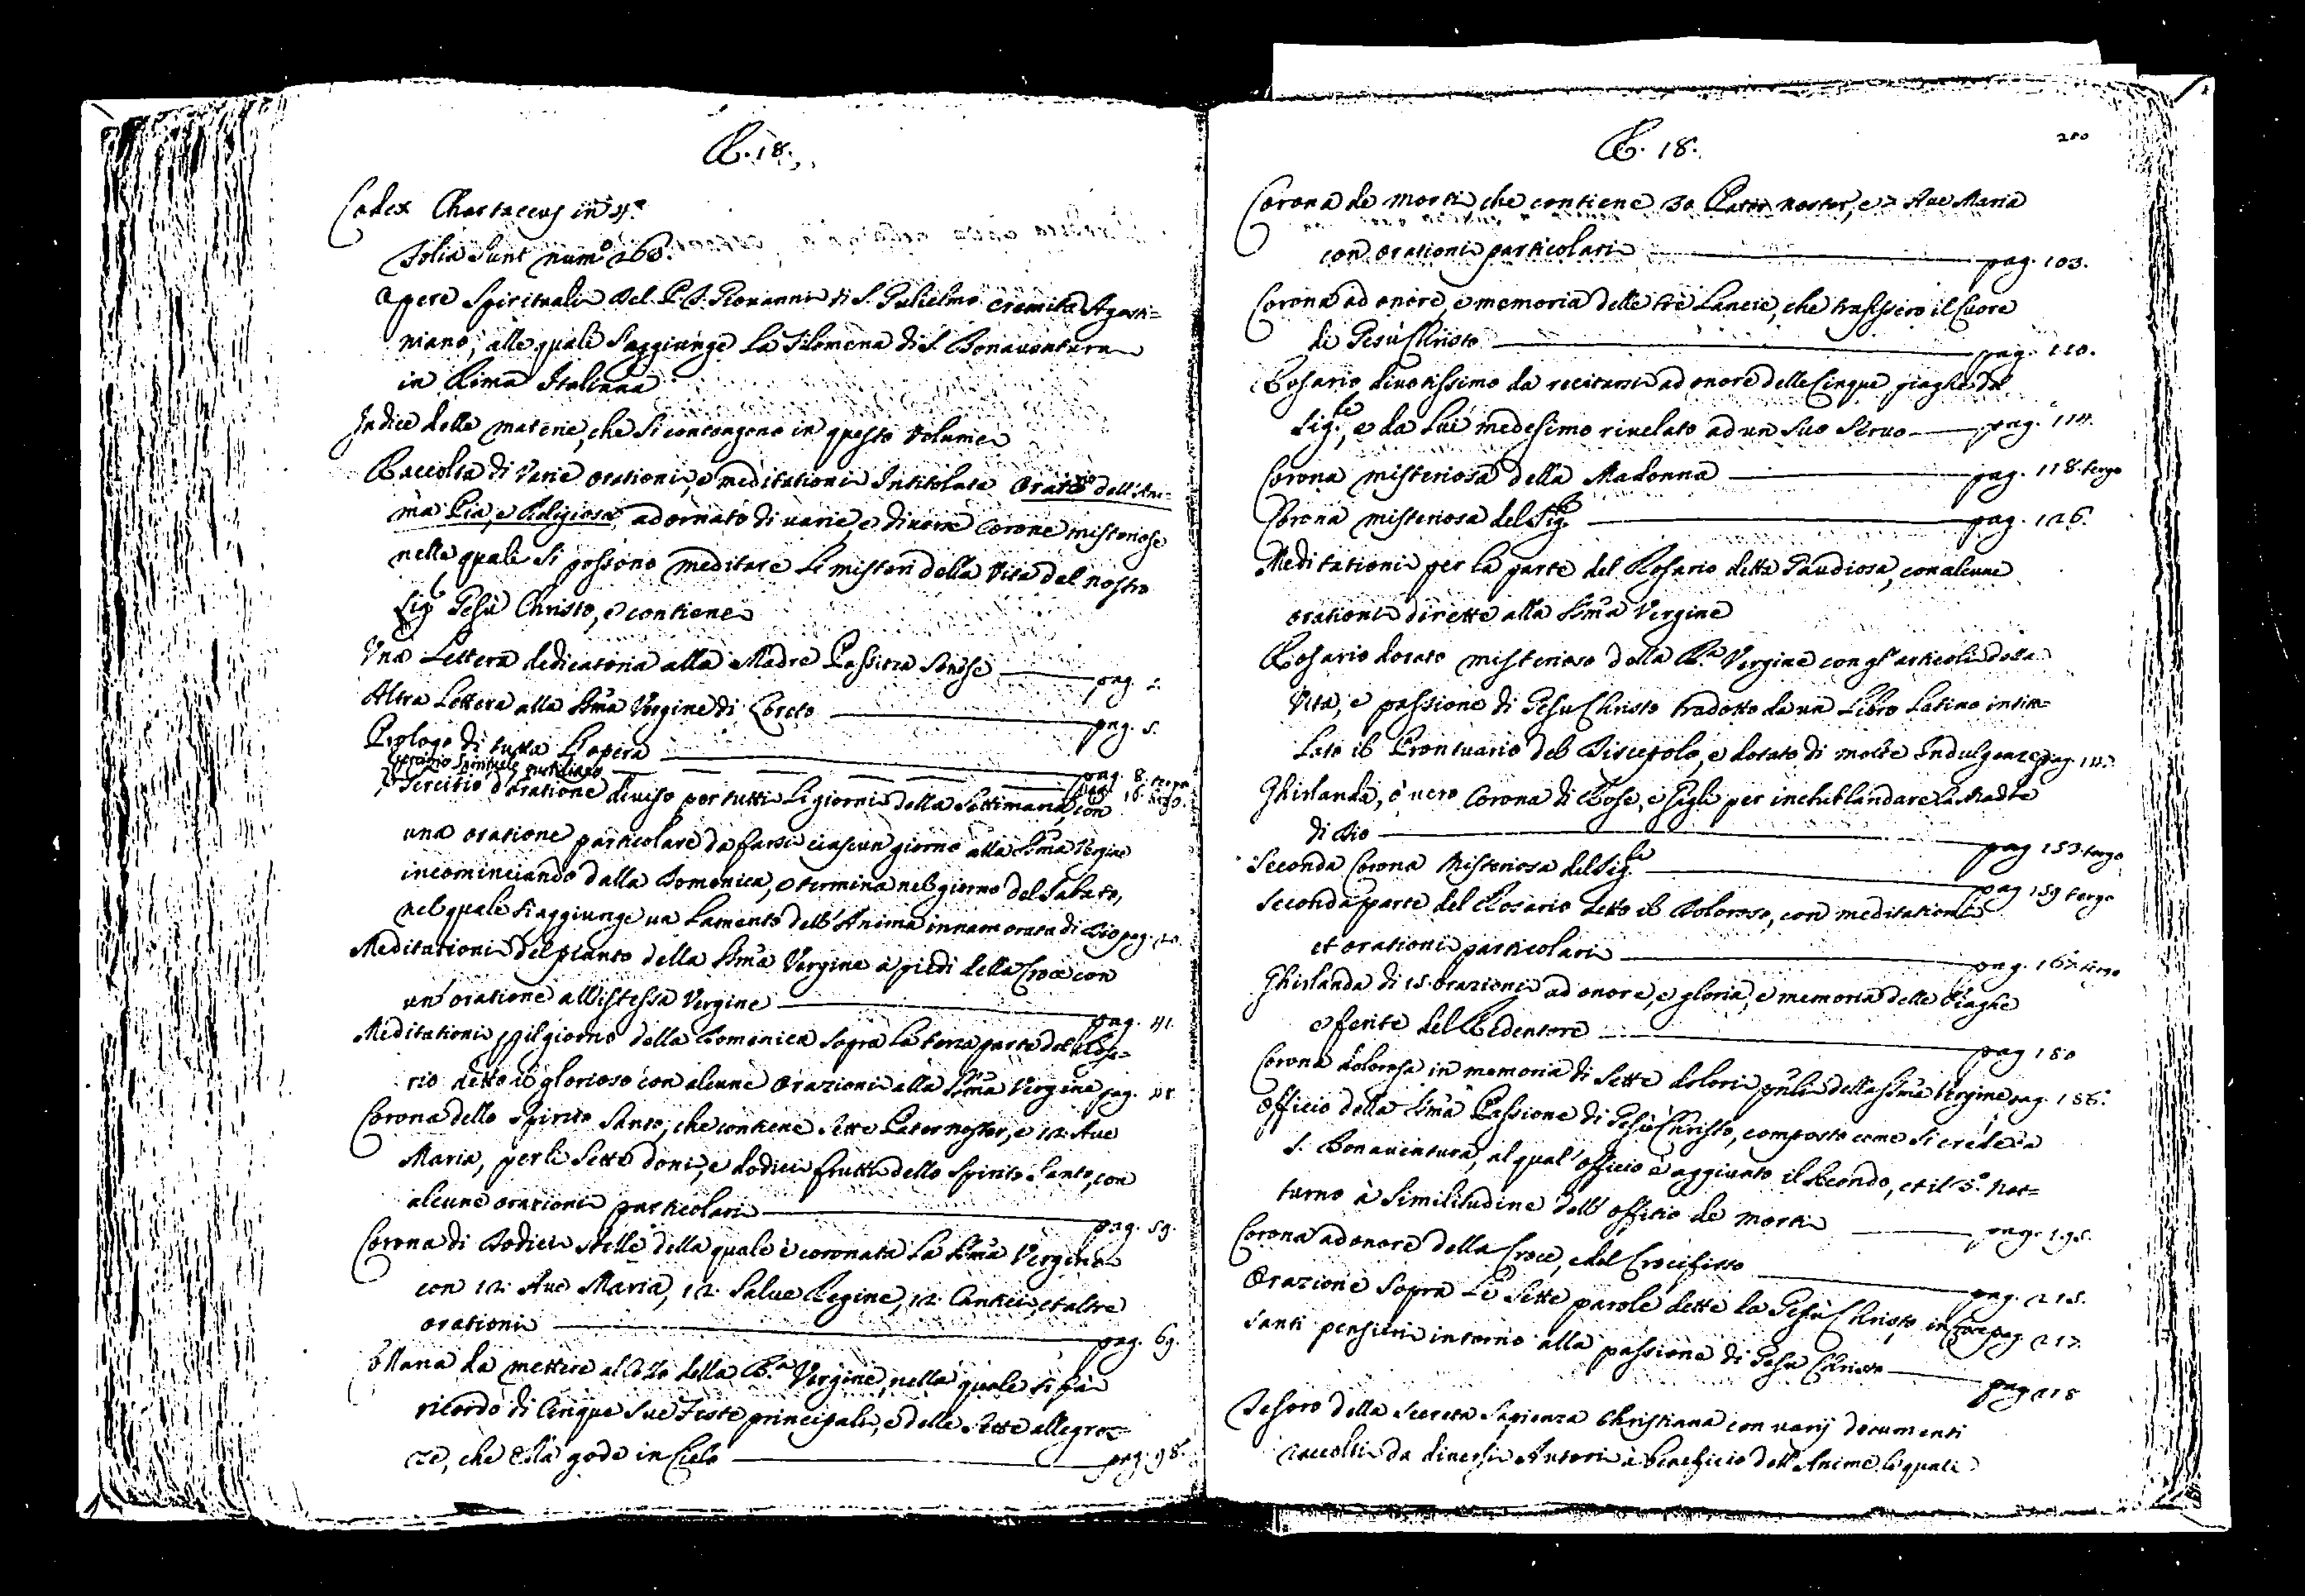 R. 18.
Codex Chartaceus in 4.º
Folia Sunt num.º 260.
Opere Spirituali del P. F. Giovanni di S. Gulielmo eremita Agosti=
niano, alle quali s'aggiunge la Filomena di S. Bonaventura
in Rima Italiana
Indice delle materie, che si contengono in questo Volume
Raccolta di Varie orationi, e meditationi Intitolata Orat.rio dell'Ani=
ma Pia, e Religiosa, adornato di varie, e diverse Corone misteriose
nelle quali si possono meditare li misteri della Vita del nostro
Sig.r Giesù Christo, e contiene
Una Lettera dedicatoria alla Madre Passitea Senese pag.
Altra Lettera alla SSma Vergine di Loreto pag. 5.
Prologo di tutta L'opera pag. 8. tergo
Esercitio Spirituale pag. 16. tergo.
Esercitio d'oratione diviso per tutti li giorni della Settimana, con
una oratione particolare da farsi ciascun giorno alla SSma Vergine
incominciando dalla Domenica, e termina nel giorno del Sabato,
nel quale s'aggiunge un Lamento dell'Anima innamorata di Dio pag. 20.
Meditationi del pianto della SSma Vergine à piedi della Croce con
un'oratione all'istessa Vergine pag. 41.
Meditationi p il giorno della Domenica sopra la terza parte del Rosa=
rio detto il glorioso con alcune Orazioni alla SSma Vergine pag.
Corona dello Spirito Santo, che contiene sette Pater noster, e 12. Ave
Maria, per li Sette doni, e dodici frutti dello Spirito Santo, con
alcune orationi particolari pag. 59.
Corona di Dodici stelle della quale è coronata la SSma Vergine
con 12. Ave Maria, 12. Salve Regine, 12. Cantici, et altre
orationi pag. 69.
Collana da mettere al Collo della B.a Vergine, nella quale si fà
ricordo di Cinque sue Feste principali, e delle Sette allegrez=
ze, che Ella gode in Cielo pag. 98.
R. 18.
280
Corona de morti che contiene 30 Pater noster, e Ave Maria
con orationi particolari pag. 103.
Corona ad onore, e memoria delle trè Lancie, che trafissero il Cuore
di Giesù Christo pag. 110.
Rosario divotissimo da recitarsi ad onore delle Cinque piaghe del
Sig.re, e da Lui medesimo rivelato ad un suo Servo pag. 114.
Corona misteriosa della Madonna pag. 118. tergo
Corona misteriosa del Sig.re pag. 126.
Meditationi per la parte del Rosario detta Gaudiosa, con alcune
orationi dirette alla SSma Vergine
Rosario dorato misterioso della B.a Vergine con gl'articoli della
Vita, e passione di Giesu Christo tradotto da un Libro Latino intito=
lato il Prontuario del Discepolo, e dotato di molte Indulgenze pag.
Ghirlanda, ò vero Corona di Rose, e Gigli per inghirlandare la Madre
di Dio pag. 153. tergo
Seconda Corona Misteriosa del Sig.re pag. 159 tergo
Seconda parte del Rosario detto il Doloroso, con meditationi
et orationi particolari pag. 167. tergo
Ghirlanda di 15. Orazioni ad onore, e gloria, e memoria delle Piaghe
e ferite del Redentore pag 180
Corona dolorosa in memoria di Sette dolori pnli della SSma Vergine pag. 186.
Officio della SSma Passione di Giesù Christo, composto come si crede da
S. Bonaventura, al qual'officio è aggiunto il secondo, et il 3.º Not=
turno à similitudine dell'offitio de morti pag. 195.
Corona ad onore della Croce, e del Crocifisso pag. 215.
Orazione sopra Le Sette parole dette da Giesù Christo in Croce pag. 217.
Santi pensieri intorno alla passione di Giesu Christo pag 218
Tesoro della secreta sapienza Christiana con varij documenti
raccolti da diversi Autori à beneficio dell'Anime, le quali